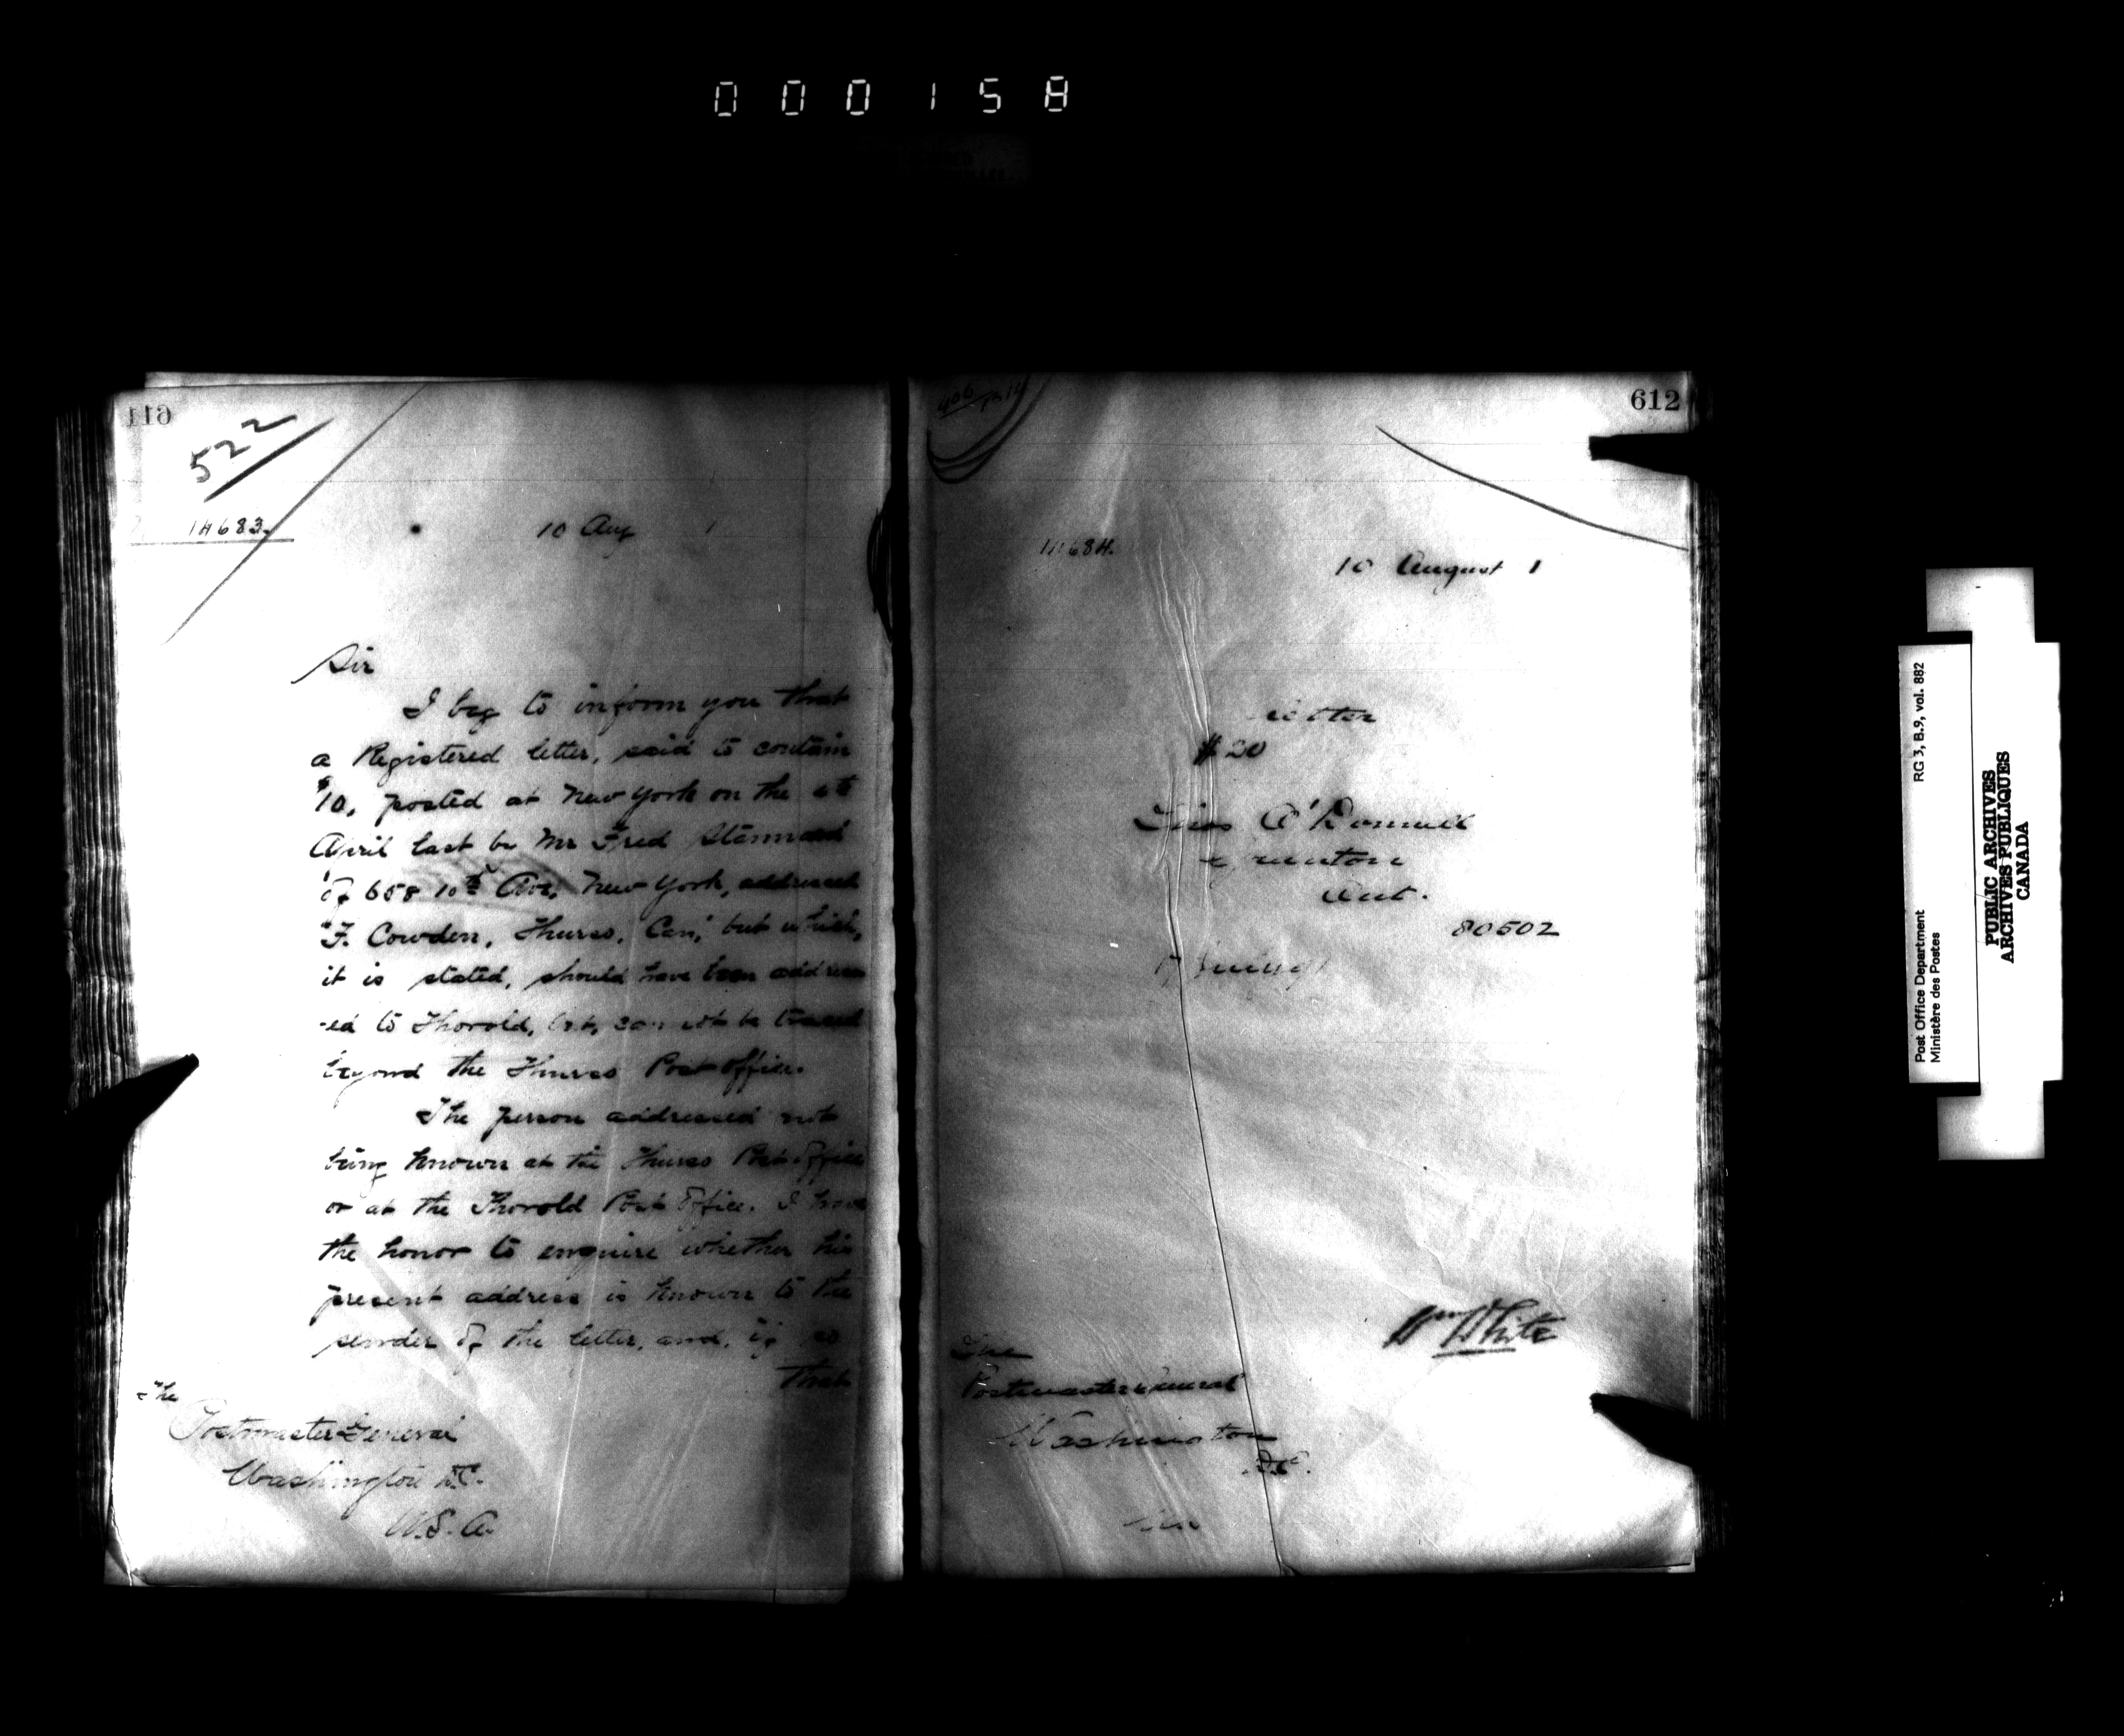 000158
611
522
14683.
10 Aug 1
Sir
I beg to inform you that
a Registered letter, said to contain
$10, posted at New York on the
April last by Mr Fred Stannard
of 658 10th Ave, New York, addressed
"F. Cowden, Thurso, Can," but which,
it is stated, should have been address
-ed to Thorold, Ont, can not be traced
beyond the Thurso Post Office.
The person addressed not
being known at the Thurso Post Office
or at the Thorold Post Office. I have
the honor to enquire whether his
present address is known to the
sender of the letter, and, if so
that
The
Postmaster General
Washington D.C.
U.S.A.
612
406
14684.
10 August 1
Letter
$20
O'Donnell
Ont.
80502
Wm White
The
Postmaster General
Washington
D.C.
Post Office Department RG 3, B.9, vol. 882
Ministère des Postes
PUBLIC ARCHIVES
ARCHIVES PUBLIQUES
CANADA